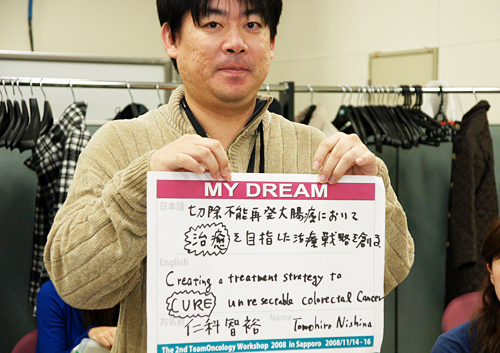 MY DREAM
日本語
切除不能再発大腸癌において
治癒を目指した治療戦略を創る
English
Creating a treatment strategy to
CURE unresectable colorectal Cancer
お名前 仁科智裕 Name Tomohiro Nishina
The 2nd TeamOncology Workshop 2008 in Sapporo 2008/11/14-16